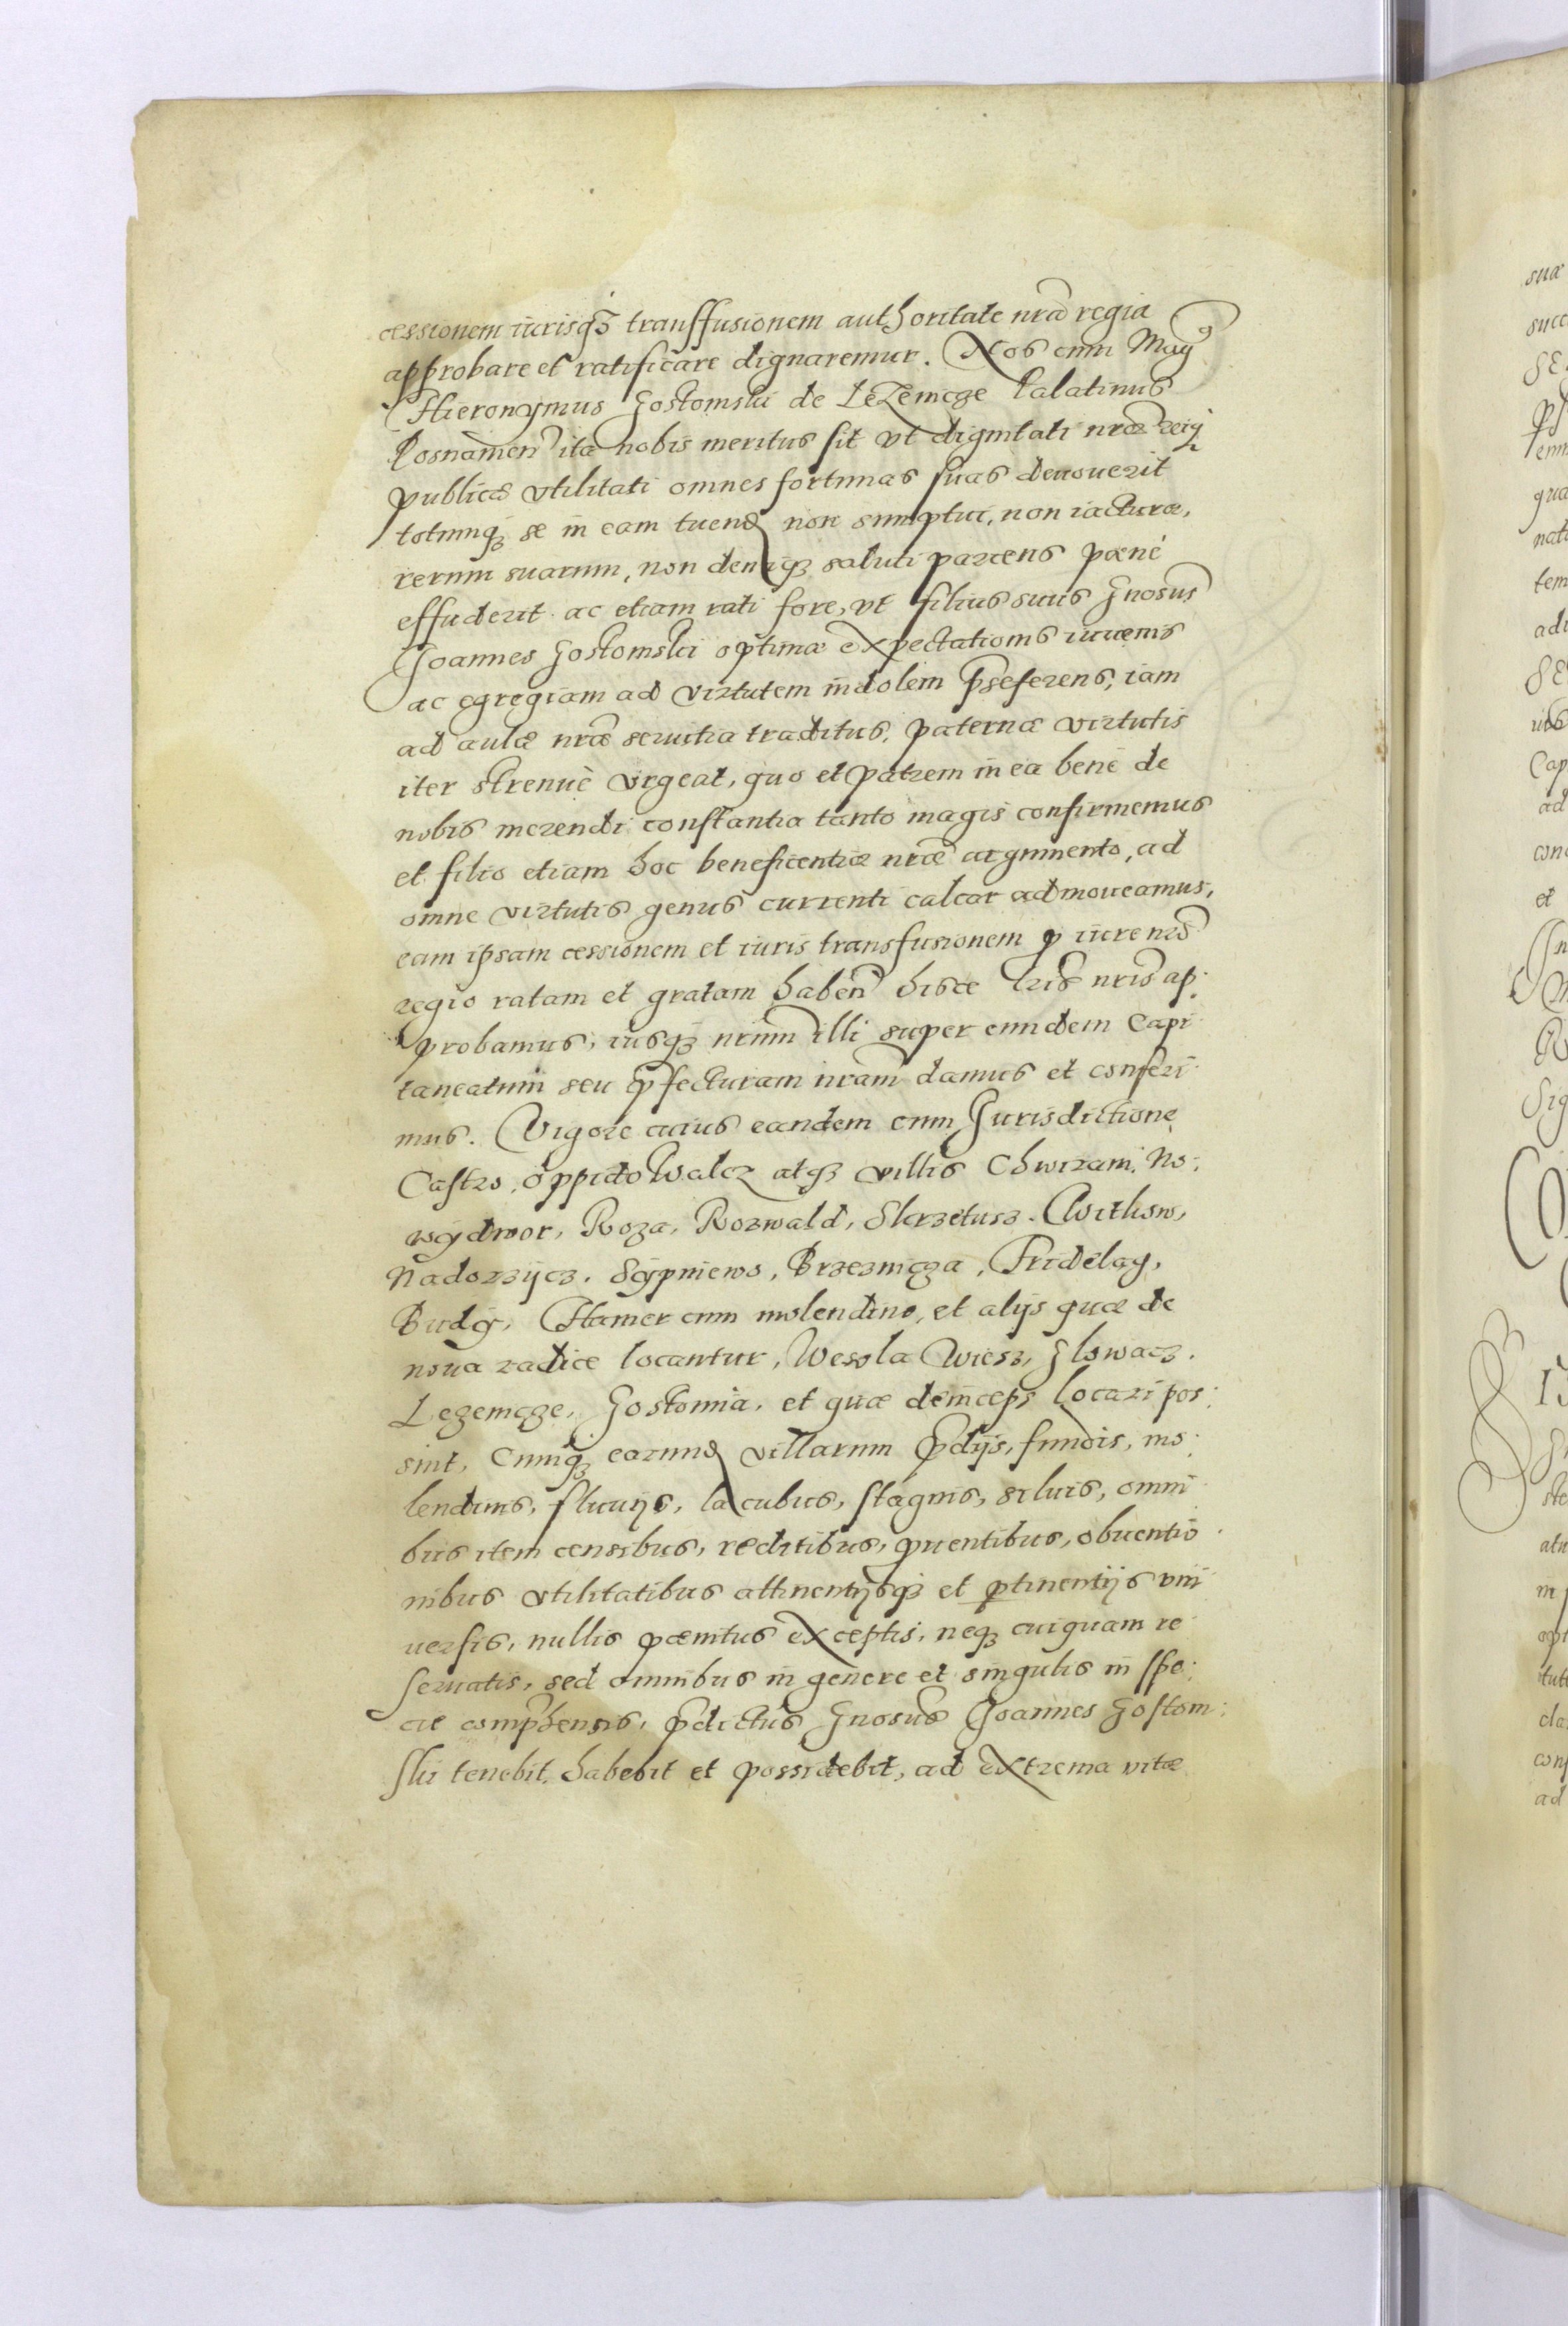 cessionem iurisq̃ȝ transffusionem authoritate nrã regia
approbare et ratificare dignaremur. Nos cum Magꝰ
Hieronymus Gostomski de Lezemcze Palatinus
Posnanien̄ ita nobis meritus sit vt dignitati nræ̃ reiq̃
publicæ vtilitati omnes fortunas suas deuouerit
totumqȝ se in eam tuend̄ non sumptui, non iacturæ,
rerum suarum, non deniqȝ saluti parcens pænè
effuderit. ac etiam rati fore, vt filius suus Gnosus̃
Joannes Gostomski optimæ expectationis iuuenis
ac egregiam ad virtutem indolem p̃seferens, iam
ad aulæ nræ̃ seruitia traditus, paternæ virtutis
iter strenuè vrgeat, quo et patrem in ea bene de
nobis merendi constantia tanto magis confirmemus
et filio etiam hoc beneficentiæ nræ̃ argumento, ad
omne virtutis genus currenti calcar admoueamus,
eam ipsam cessionem et iuris transfusionem ꝓ iure nrõ
regio ratam et gratam haben̄ hisce lris̃ nris̃ ap:
probamus, iusqȝ nrum̃ illi super eundem Capi
taneatum seu p̃fecturam nram̃ damus et conferi
mus. Vigore cuius eandem cum Jurisdictione
Castro, oppido Walcz atqȝ villis Chwiram, No:
wydwor, Roza, Rozwald, Skrzetusz. Witkow,
Nadorzijcz. Sypniewo, Brzeznicza, Fridelag,
Budy, Hamer cum molendino, et alijs quæ de
noua radice locantur, Wesola Wiesz, Glowacz.
Lezemcze, Gostomia, et quæ deinceps locari pos:
sint, Cumqȝ earund̄ villarum p̃dijs, fundis, mo:
lendinis, fluuijs, lacubus, stagnis, siluis, omni
bus item censibus, reditibus, ꝓuentibus, obuentio
nibus vtilitatibus attinentijsqȝ et ꝑtinentijs vni
uersis, nullis pænitus exceptis, neqȝ cuiquam re
seruatis, sed omnibus in genere et singulis in spe:
cie comp̃hensis, p̃dictus Gnosus̃ Joannes Gostom:
ski tenebit, habebit et possidebit, ad extrema vitæ